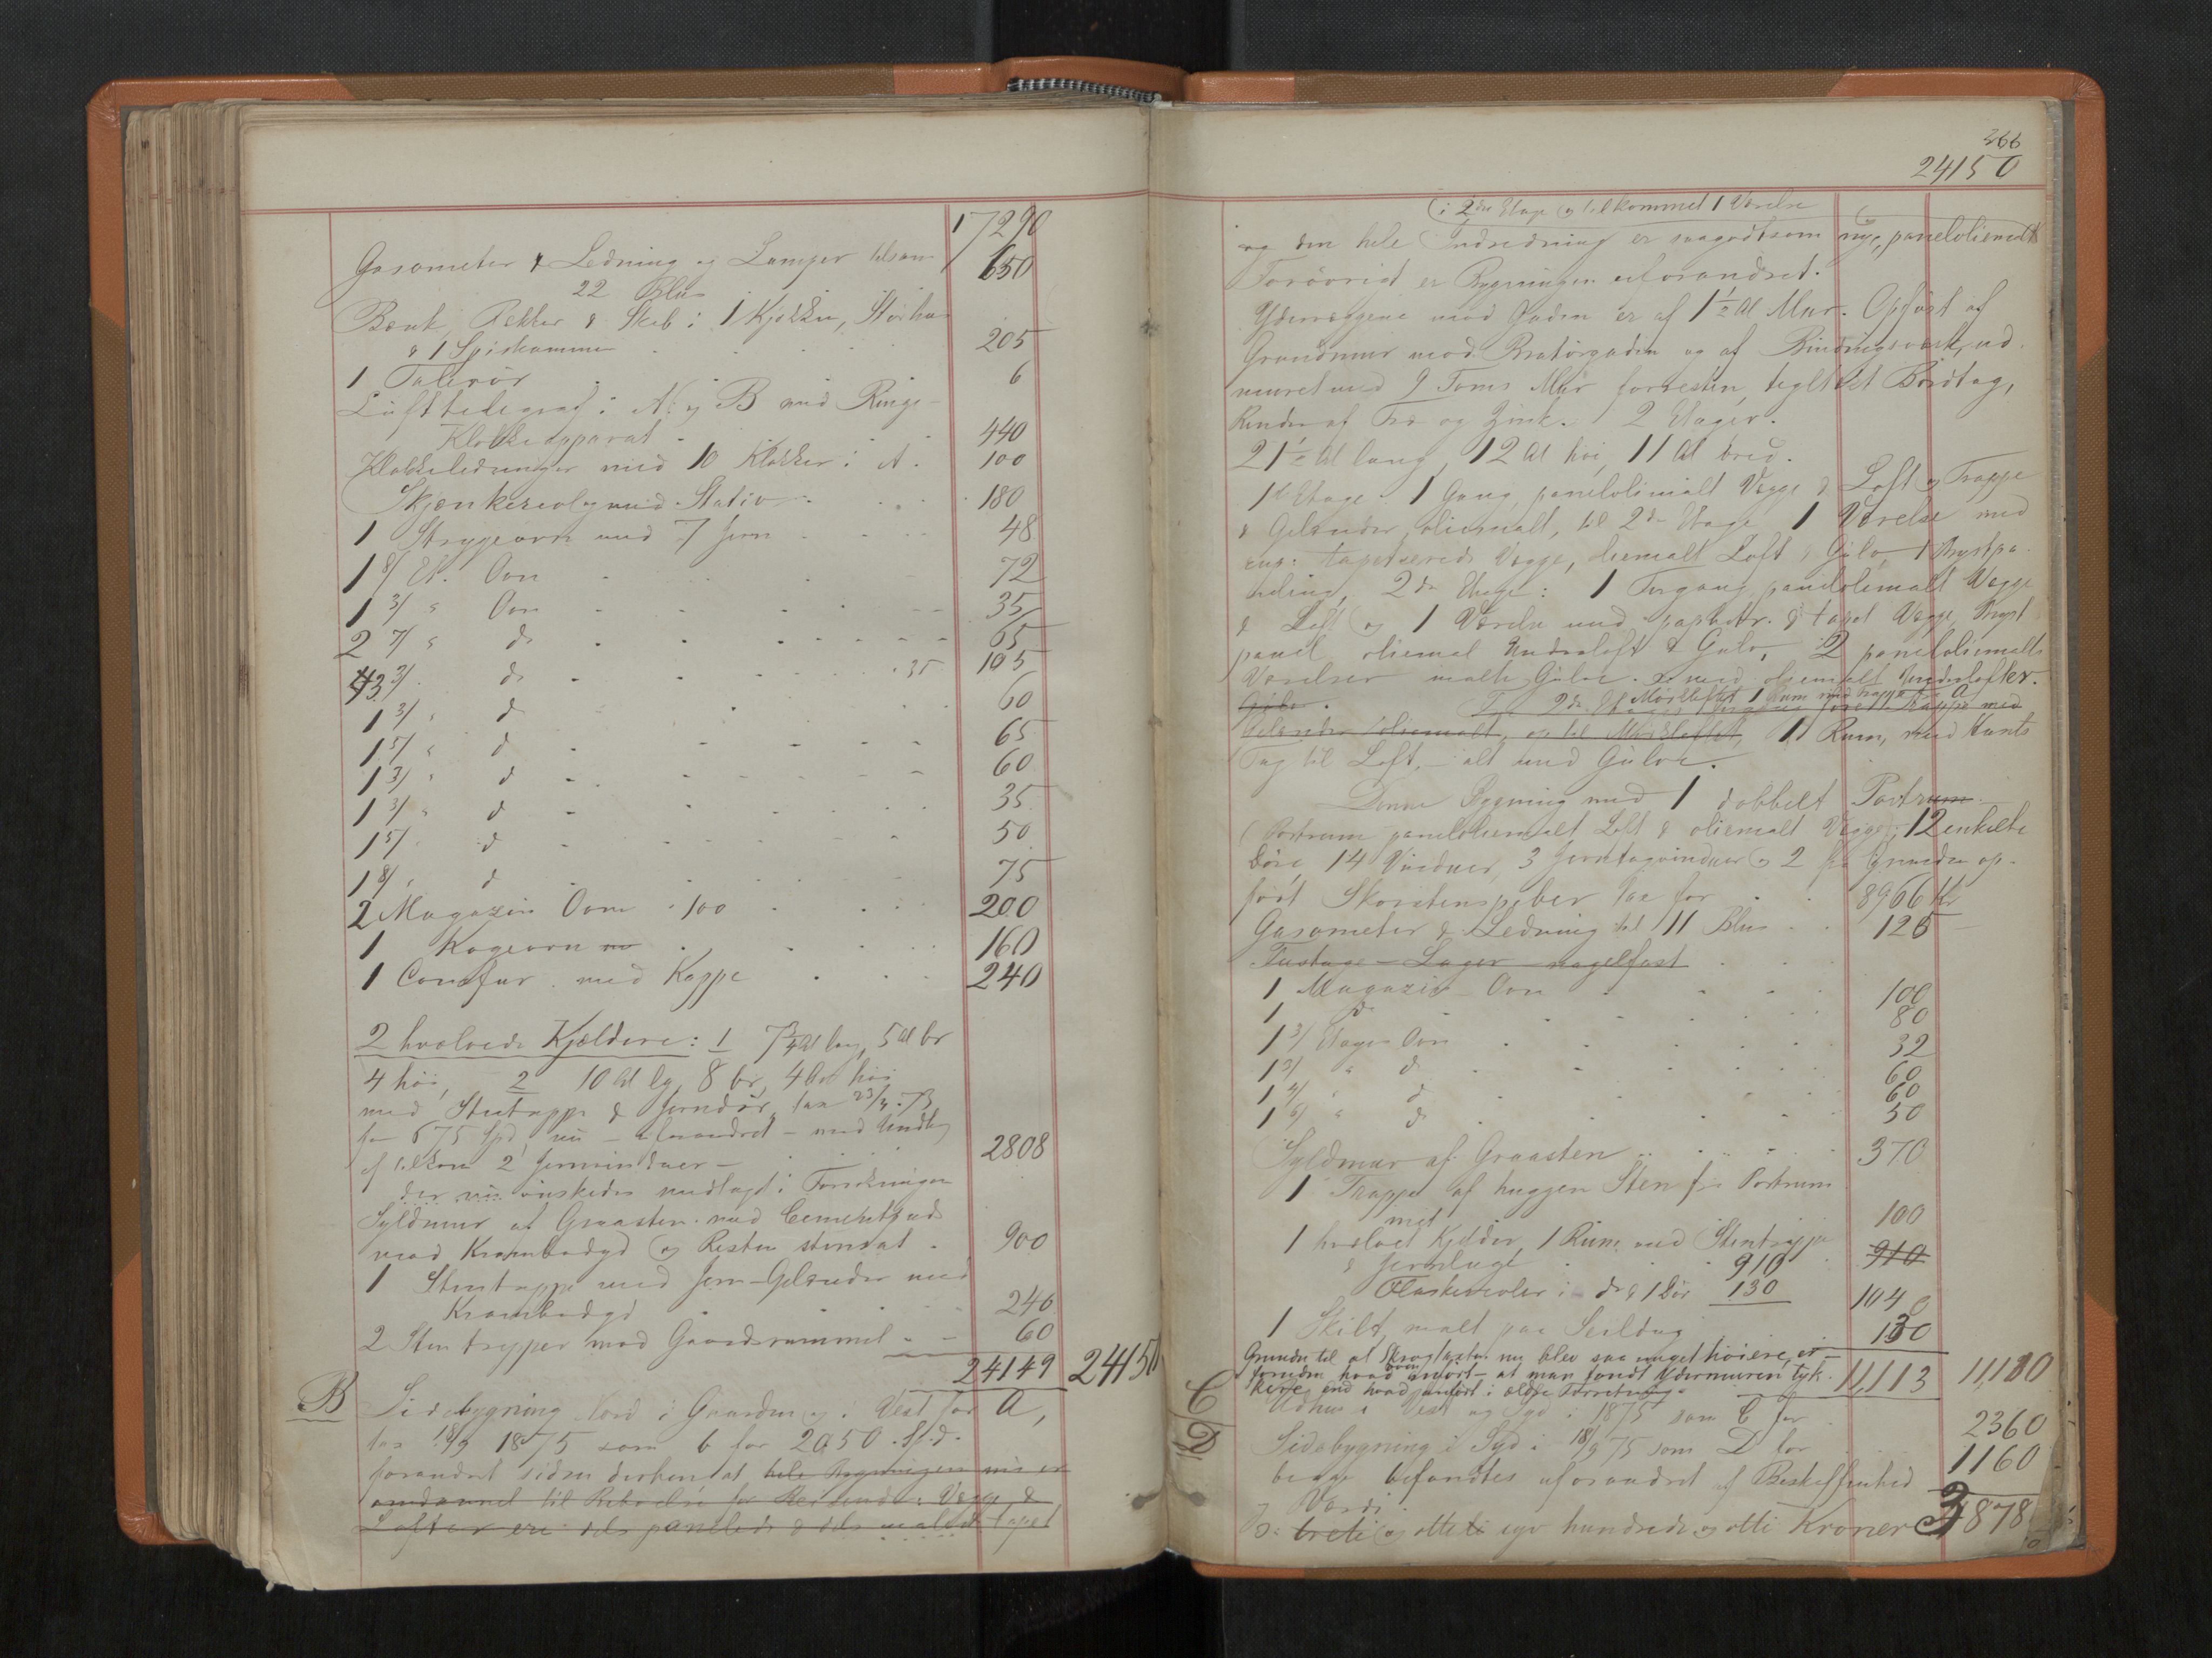 17290
Gasometer & Ledning og Lamper tilsam
22 Blus 650
Bænk, Rækker & Skab i 1 Kjøkken,
& 1 Spiskammer 205
1 Talerør 6
Lufttelegraf i A og B med Ringe-
Klokkeapparat 440
Klokkeledninger med 10 Klokker i A. 100
med Stativ 180
1 Strygeovn med 7 Jern 48
1 8/ Et. Ovn 72
1 3/ " Ovn 35
2 7/ " do 65
3 3/ do 35 105
1 3/ " d 60
1 5/ " d 65
1 3/ " d 60
1 3/ " d 35
1 5/ d 50
1 8/ " d 75
2 Magazin Ovne 100 200
1 Kogeovn 160
1 Comfur med Kappe 240
2 hvælvede Kjældere: 1 7 3/4 Al lang, 5 Al br
4 høi, 2 10 Al lg, 8 br, 4 Al høi
med Stentrappe & Jerndør, tax 23/4 73
for 675 Spd, nu uforandret med Undt
af tilkom 2 Jernvinduer 2808
der nu ønskedes medtaget i Forsikringen
Syldmur af Graasten med Cementpuds
mod Krambodgd og Resten stensat 900
1 Stentrappe med Jern-Gelænder mod
Krambodgd 240
2 Stentrapper mod Gaardsrummet 60
24149 24150
B Sidebygning Nord i Gaarden og i Vest for A,
tax 18/9 1875 som b for 2050 Spd.
forandret siden derhen at hele Bygningen nu er
omdannet til Beboelse for Reisende: Vægge &
Lofter ere dels panelede & dels malede tapet
366
24150
(i 2den Etage er tilkommet 1 Værelse
og den hele Indredning er saagodtsom ny, paneloliemalt
Forøvrigt er Bygningen uforandret.
Ydervæggene mod Gaden er af 1 1/2 Al Mur. Opført af
Grundmur mod Bratørgaden og af Bindingsværk, ud
muret med 9 Toms Mur forresten, teglhet Bordtag,
Render af Træ og Zink. 2 Etager.
21 1/2 Al lang, 12 Al høi, 11 Al bred.
1st Etage: 1 Gang, paneloliemalt Vægge & Loft og Trappe
& Gelænder oliemalt, til 2den Etage, 1 Værelse med
tapetserede Vægge, oliemalt Loft & Gulv, Brystpa
neling, 2den Etage: 1 Forgang paneloliemalt Vægge
& Loft og 1 Værelse med papbetr. & tapet Vægge, Bryst
panel oliemal Underloft & Gulv, 2 paneloliemalte
Værelser malte Gulve med oliemalt Underlofter.
Gulve. Fra 2den Et Mørkloftet 1 Rum med Trappe fra A
Gelænder oliemalt, op til Mørkloftet, 1 Rum, med
Tag til Loft, alt med Gulve.
Denne Bygning med 1 dobbelt Portrum
(Portrum paneloliemalt Loft & oliemalt Vægge), 12 enkelte
Døre, 14 Vinduer, 3 Jerntagvinduer og 2 fra Grunden op-
ført Skorstenspiber tax for 8966 Kr
Gasometer & Ledning til 11 Blus 125
Fustage-Lager nagelfast
1 Magazin-Ovn 100
1 do 80
1 3/ Etages Ovn 32
1 3/ " d 60
1 4/ " d 60
1 6/ " do 50
Syldmur af Graasten 370
1 Trappe af huggen Sten fra Portrum
met 100
1 hvælvet Kjelder, 1 Rum med Stentrappe
& Jernluge 910 910
Flaskereoler i do & 1 Dør 130 1040
1 Skilt, malt paa Seildug 130
Grunden til at Skrogtaxten nu blev saa meget høiere, er
foruden hvad oven anført at man fandt Ydermuren tyk-
kere end hvad anført i ældre Forretning. 11,113 11,110
C Udhus i Vest og Syd i 1875 som C for 2360
D Sidebygning i Syd i 18/9 75 som D for 1160
begge befandtes uforandret af Beskaffenhed
og Værdi.
D: treti og otteti syv hundrede og otti Kroner 38780